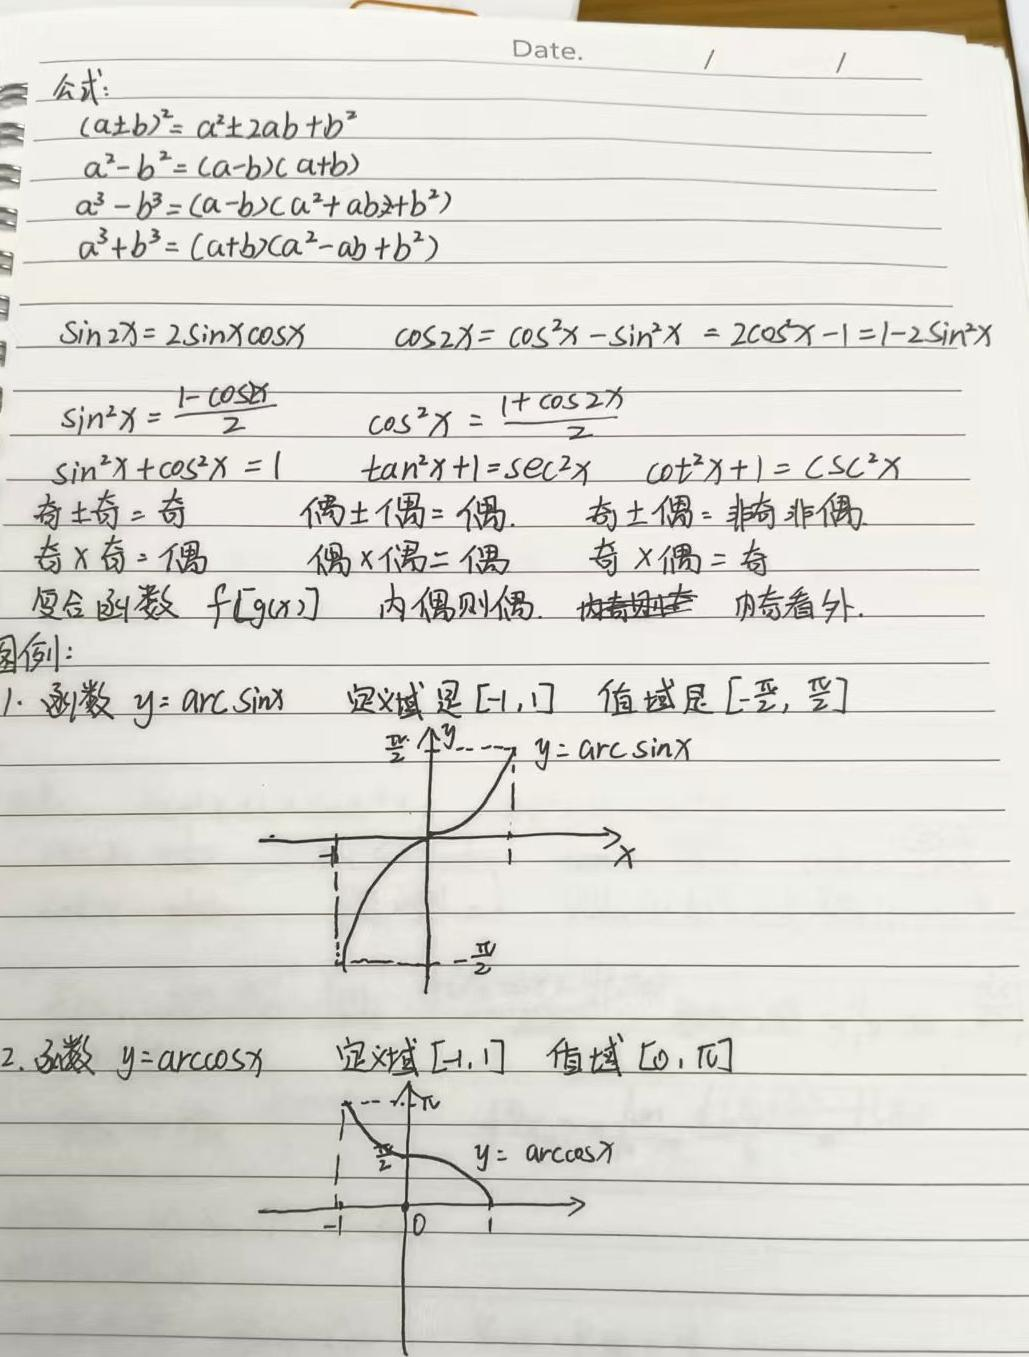 Date. / /
公式:
(a±b)²=a²±2ab+b²
a²-b²=(a-b)(a+b)
a³-b³=(a-b)(a²+ab+b²)
a³+b³=(a+b)(a²-ab+b²)
sin2x=2sinxcosx cos2x=cos²x-sin²x=2cos²x-1=1-2sin²x
sin²x=(1-cos2x)/2 cos²x=(1+cos2x)/2
sin²x+cos²x=1 tan²x+1=sec²x cot²x+1=csc²x
奇±奇=奇 偶±偶=偶. 奇±偶=非奇非偶.
奇×奇=偶 偶×偶=偶 奇×偶=奇
复合函数 f[g(x)] 内偶则偶. 内奇看外.
图例:
1. 函数 y=arcsinx 定义域是[-1,1] 值域是[-π/2,π/2]
π/2 y y=arcsinx
-1 1 x
-π/2
2. 函数 y=arccosx 定义域[-1,1] 值域[0,π]
π
π/2 y=arccosx
-1 0 1